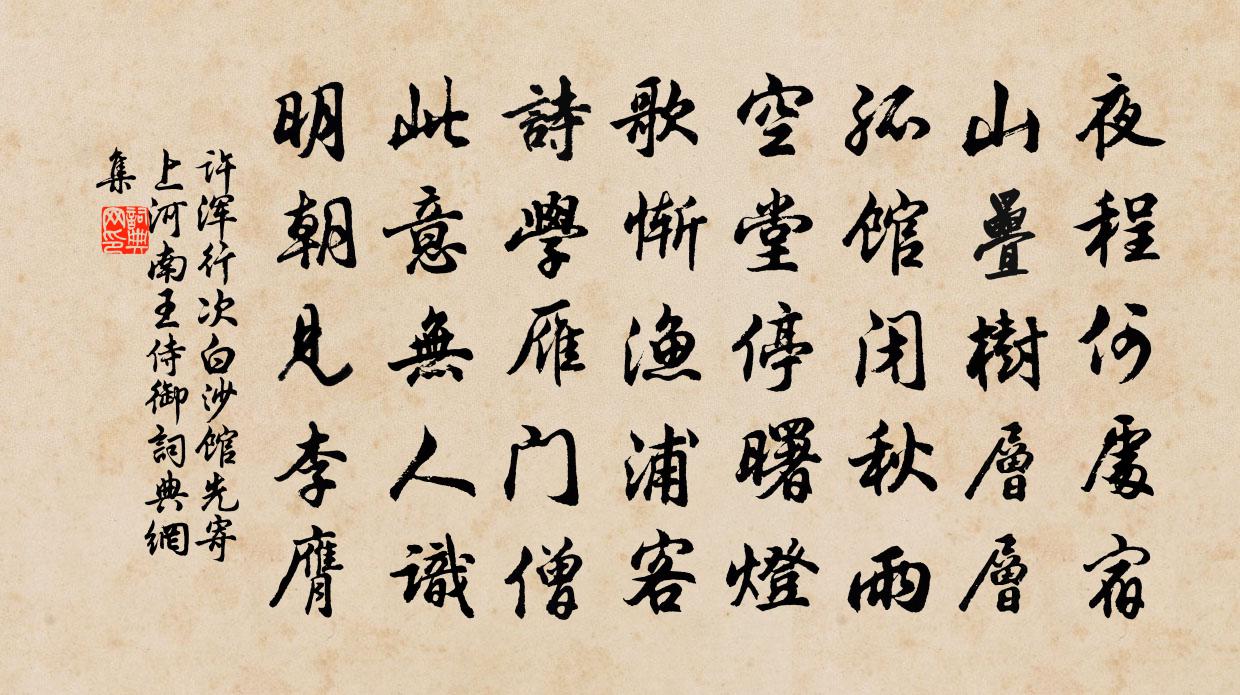 夜程何處宿
山疊樹層層
孤館闭秋雨
空堂停曙燈
歌慚漁浦客
詩學雁门僧
此意無人識
明朝見李膺
許浑行次白沙館先寄
上河南王侍御詞典網
集
詞典网印